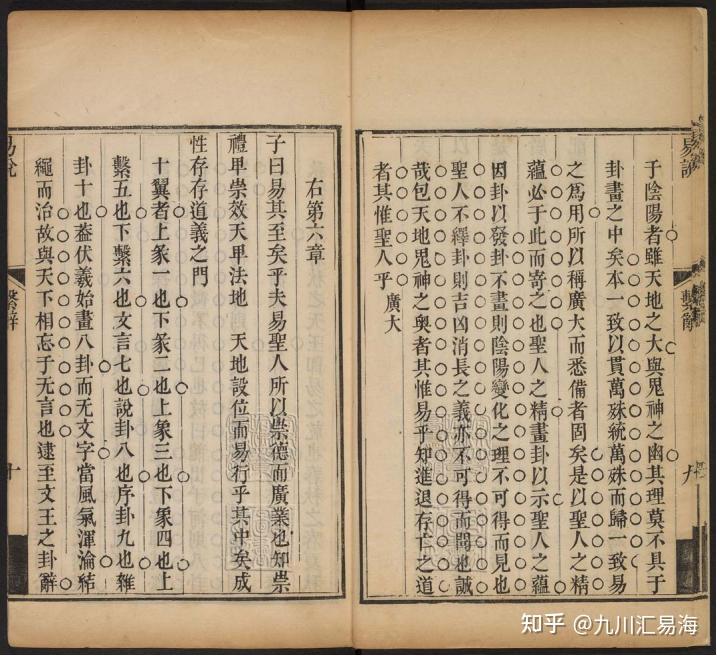 易說
繫辭
九
子陰陽者雖天地之大與鬼神之幽其理莫不具于
卦畫之中矣本一致以貫萬殊統萬殊而歸一致易
之爲用所以稱廣大而悉備者固矣是以聖人之精
蘊必于此而寄之也聖人之精畫卦以示聖人之蘊
因卦以發卦不畫則陰陽變化之理不可得而見也
聖人不繹卦則吉凶消長之義亦不可得而聞也誠
哉包天地鬼神之奥者其惟易乎知進退存亡之道
者其惟聖人乎 廣大
右第六章
子曰易其至矣乎夫易聖人所以崇德而廣業也知崇
禮卑崇效天卑法地 天地設位而易行乎其中矣成
性存存道義之門
十翼者上彖一也下彖二也上象三也下象四也上
繫五也下繫六也文言七也說卦八也序卦九也雜
卦十也葢伏羲始畫八卦而无文字當風氣渾淪結
繩而治故與天下相忘于无言也逮至文王之卦辭
易說
繫辭
十
知乎 @九川汇易海